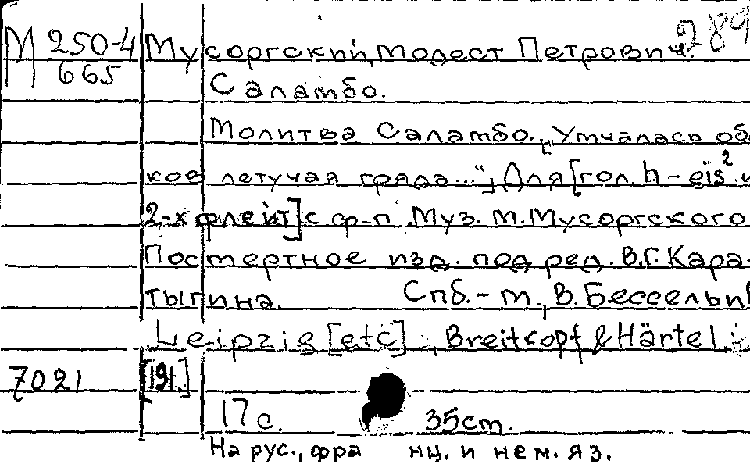 289
М 250-4 Мусоргский, Модест Петрович.
665 Саламбо.
Молитва Саламбо. „Умчалась об
кое летучая гряда...“; Для [гол. h – eis² и
2-х флейт] с ф-п. Муз. М. Мусоргского
Посмертное изд. под ред. В.Г. Кара-
тыгина. Спб. – М., В. Бессель и
Leipzig [etc], Breitkopf & Härtel.
7021 [191.]
17 с. 35 cm.
На рус., фра нц. и нем. яз.